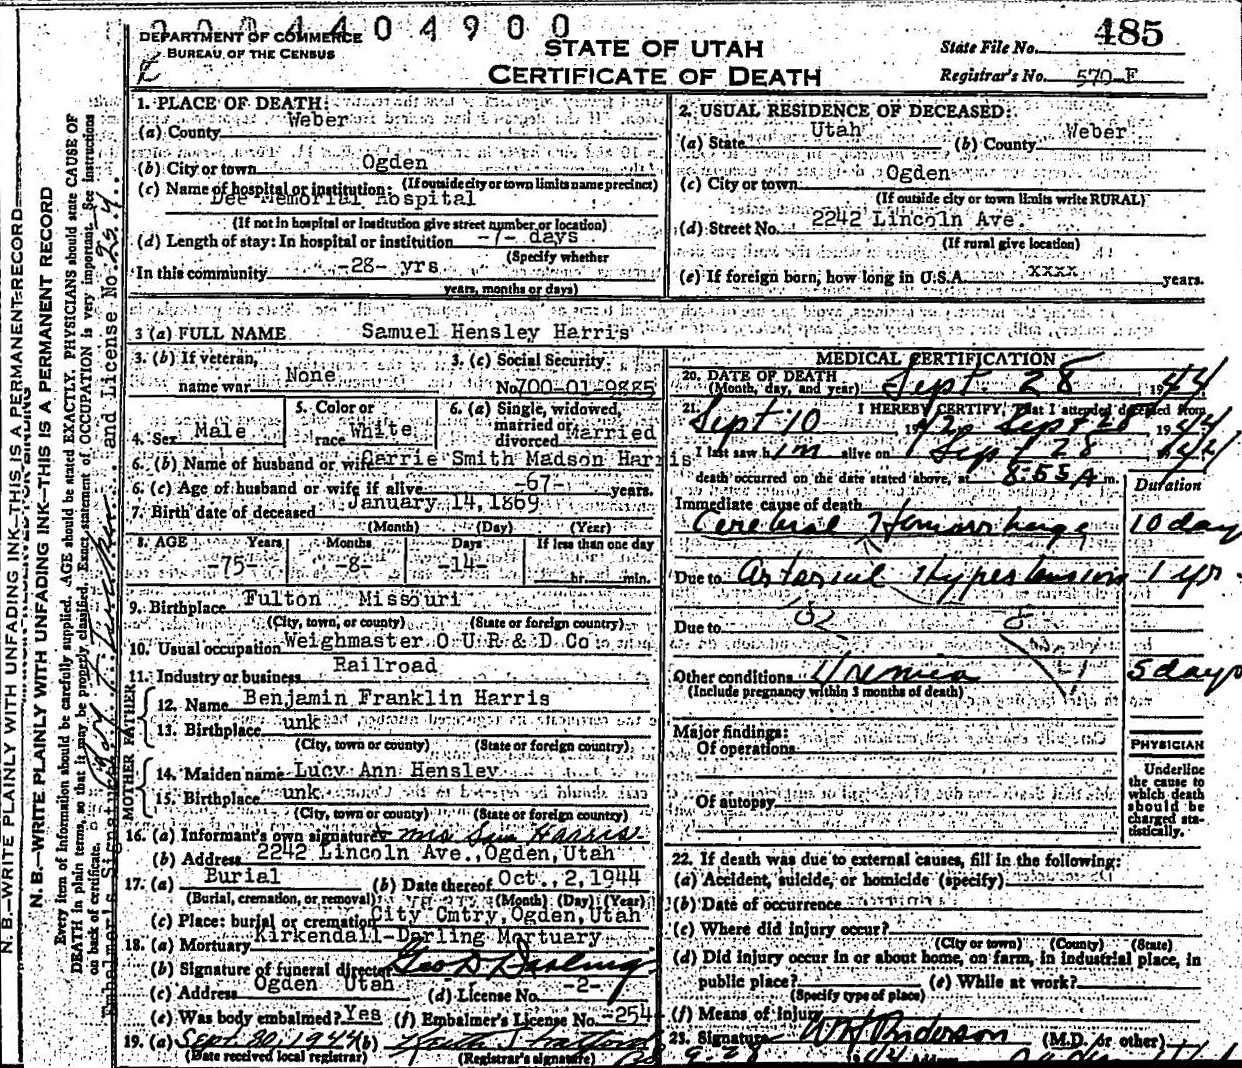 2004404900
DEPARTMENT OF COMMERCE
BUREAU OF THE CENSUS
STATE OF UTAH
CERTIFICATE OF DEATH
State File No. 485
Registrar's No. 570 F
1. PLACE OF DEATH:
(a) County Weber
(b) City or town Ogden
(If outside city or town limits name precinct)
(c) Name of hospital or institution:
Dee Memorial Hospital
(If not in hospital or institution give street number or location)
(d) Length of stay: In hospital or institution -7- days
(Specify whether
In this community -28- yrs
years, months or days)
2. USUAL RESIDENCE OF DECEASED:
(a) State Utah (b) County Weber
(c) City or town Ogden
(If outside city or town limits write RURAL)
(d) Street No. 2242 Lincoln Ave.
(If rural give location)
(e) If foreign born, how long in U.S.A. xxxx years.
3 (a) FULL NAME Samuel Hensley Harris
3. (b) If veteran, name war None
3. (c) Social Security No 700-01-9885
4. Sex Male
5. Color or race White
6. (a) Single, widowed, married or divorced Married
6. (b) Name of husband or wife Carrie Smith Madson Harris
6. (c) Age of husband or wife if alive -67- years.
7. Birth date of deceased January 14, 1869
(Month) (Day) (Year)
8. AGE Years Months Days If less than one day
-75- -8- -14- hr. min.
9. Birthplace Fulton Missouri
(City, town, or county) (State or foreign country)
10. Usual occupation Weighmaster O U R & D Co
11. Industry or business Railroad
FATHER
12. Name Benjamin Franklin Harris
13. Birthplace unk
(City, town or county) (State or foreign country)
MOTHER
14. Maiden name Lucy Ann Hensley
15. Birthplace unk
(City, town or county) (State or foreign country)
16. (a) Informant's own signature Mrs Sam Harris
(b) Address 2242 Lincoln Ave., Ogden, Utah
17. (a) Burial (b) Date thereof Oct., 2, 1944
(Burial, cremation, or removal) (Month) (Day) (Year)
(c) Place: burial or cremation City Cmtry, Ogden, Utah
18. (a) Mortuary Kirkendall-Darling Mortuary
(b) Signature of funeral director Geo D Darling
(c) Address Ogden Utah (d) License No. -2-
(e) Was body embalmed? Yes (f) Embalmer's License No. -254
19. (a) Sept 30, 1944 (b)
(Date received local registrar) (Registrar's signature)
MEDICAL CERTIFICATION
20. DATE OF DEATH
(Month, day, and year) Sept. 28, 1944
21. I HEREBY CERTIFY, That I attended deceased from
Sept 10 1942 to Sept 28 1944
I last saw h im alive on Sept 28 1944
death occurred on the date stated above, at 8:55 A m.
Duration
Immediate cause of death
Cerebral Hemorrhage 10 days
Due to Arterial Hypertension 1 yr.
Due to
Other conditions Uremia 5 days
(Include pregnancy within 3 months of death)
Major findings:
Of operations
Of autopsy
PHYSICIAN
Underline
the cause to
which death
should be
charged sta-
tistically.
22. If death was due to external causes, fill in the following:
(a) Accident, suicide, or homicide (specify)
(b) Date of occurrence
(c) Where did injury occur?
(City or town) (County) (State)
(d) Did injury occur in or about home, on farm, in industrial place, in
public place? (e) While at work?
(Specify type of place)
(f) Means of injury
23. Signature (M.D. or other)
9-28
N. B.—WRITE PLAINLY WITH UNFADING INK—THIS IS A PERMANENT RECORD
N. B.—WRITE PLAINLY WITH UNFADING INK—THIS IS A PERMANENT RECORD
Every item of information should be carefully supplied. AGE should be stated EXACTLY. PHYSICIANS should state CAUSE OF
DEATH in plain terms, so that it may be properly classified. Exact statement of OCCUPATION is very important. See instructions
on back of certificate.
Embalmer's Signature and License No. 254